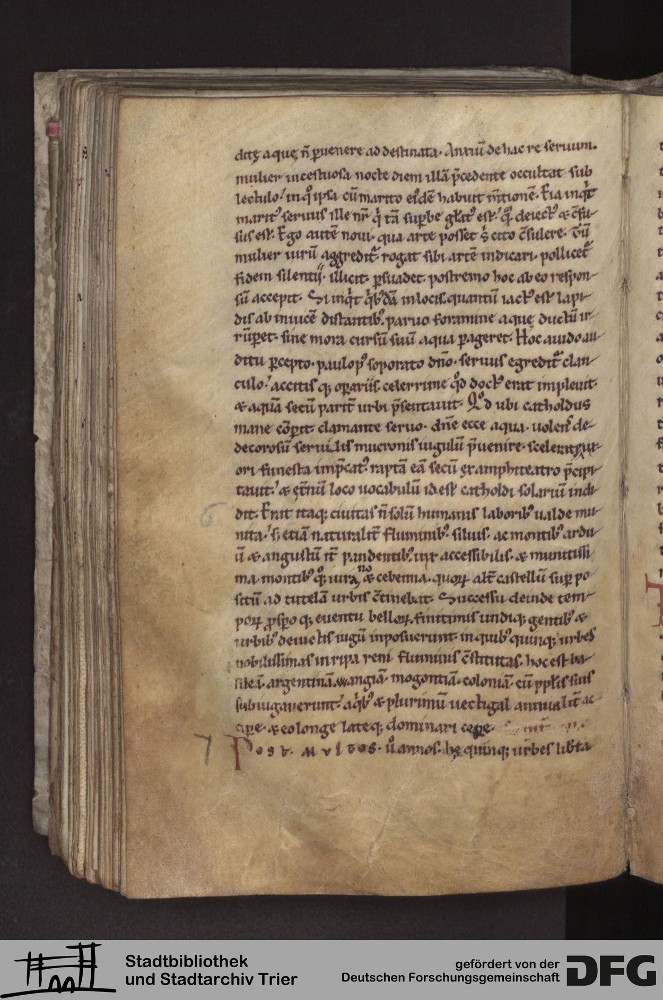 ditę aque, n̄ ꝑuenere ad destinata. Anxiū de hac re seruum.
mulier incestuosa nocte diem illā p̄cedente occultat sub
lectulo. in q̊ ipsa cū marito eiꝰdē habuit m̄tionē. Eia inqͥt
marit᷒ seruus ille nr̄. qͥ tā supbe
sus est. Ego autē noui. qua arte posset
mulier uirū aggredit᷑. rogat sibi artē indicari. pollicet᷑
fidem silentij. illicit. ꝑsuadet. postremo hoc ab eo respon-
sū accepit. Si inqͥt qͥb᷒dā in locis. quantū iact᷒ est lapi-
dis ab inuicē distantib᷒. paruo foramine aquę ductū ir-
rūperet. sine mora cursū suū aqua ꝑageret. Hoc auido au-
ditu ꝑcepto. paulo pꝰ soporato dn̄o. seruus egredit᷑ clan-
culo. accitis qꝫ oꝑariis. celerrime qd̄ doct᷒ erat impleuit.
& aquā secū parit̄ urbi p̄sentauit. Qd̊ ubi catholdus
mane cōꝑit. clamante seruo. dn̄e ecce aqua. uolens de-
decorosū seruilis mucronis iugulū p̄uenire.
ori funesta imp̄cat᷒. raptā eā secū ex amphiteatro p̄cipi-
tauit. & et̄nū loco uocabulū id est catholdi solariū indi-
dit. Erat itaqꝫ ciuitas n̄ solū humanis laborib᷒ ualde mu-
nita. sꝫ etiā naturalit̄ fluminib᷒. siluis. ac montib᷒ ardu-
ū & angustū it̄ pandentib᷒ uix accessibilis. & munitissi-
ma montib᷒ qꝫ iurano & cebenna. quoꝝ alt̄ castellū suꝑ po-
sitū ad tutelā urbis cōtinebat. Successu deinde tem-
poꝝ ꝓspo qꝫ euentu belloꝝ. finitimis undiqꝫ gentib᷒ &
urbib᷒ deuictis iugū inposuerunt. in quib᷒ quinqꝫ urbes
nobilissimas in ripa reni fluminis cōstitutas. hoc est ba-
sileā. argentinā. wangiā. mogontiā. coloniā. cū pp̄lis suis
subiugauerunt. a qͥb᷒ & plurimū uectigal annualit̄ ac-
cipe. & eo longe lateqꝫ dominari cepe.
6
7 Post multos. u̇ annos. hę quinqꝫ urbes libta
Stadtbibliothek
und Stadtarchiv Trier
gefördert von der
Deutschen Forschungsgemeinschaft
DFG